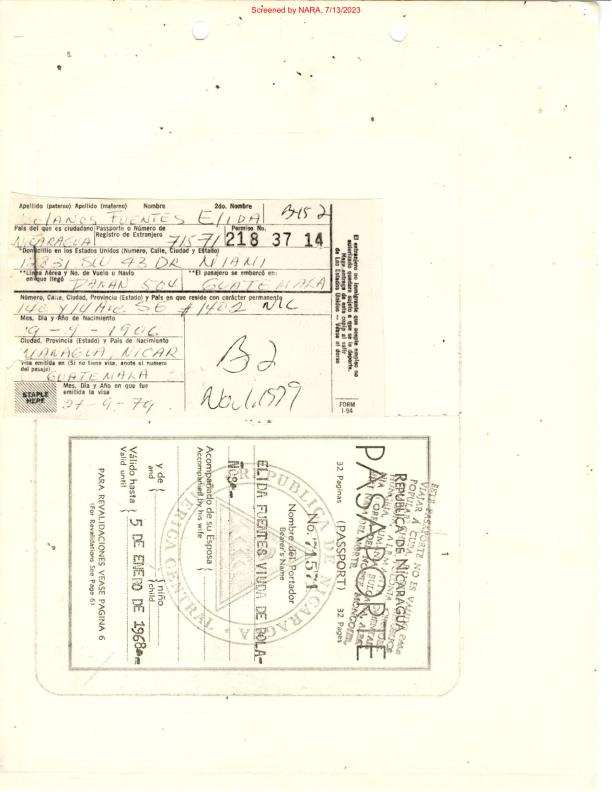 Screened by NARA, 7/13/2023
Apellido (paterno) Apellido (materno) Nombre 2do. Nombre
Bolanos Fuentes Elida B-15 2
País del que es ciudadano Pasaporte o Número de Registro de Extranjero Permiso No.
NICARAGUA 71571 218 37 14
*Domicilio en los Estados Unidos (Numero, Calle, Ciudad y Estado)
SW 43 DR MIAMI
**Línea Aérea y No. de Vuelo o Navío en que llegó **El pasajero se embarcó en:
PANAM 504 GUATEMALA
Número, Calle, Ciudad, Provincia (Estado) y País en que reside con carácter permanente
14 Ave. SE #1402 NIC
Mes, Día y Año de Nacimiento
19-9-1906
Ciudad, Provincia (Estado) y País de Nacimiento
MANAGUA, NICAR
Visa emitida en (Si no tiene visa, anote el numero del pasaje)
GUATEMALA
Mes, Día y Año en que fue emitida la visa
27-9-79
STAPLE HERE
B2
Nov 1, 1979
El extranjero no inmigrante que acepte empleo no
autorizado quedará sujeto a que se le deporte.
Haga entrega de esta copia al salir
de Los Estados Unidos
FORM
I-94
1
ESTE PASAPORTE NO ES VALIDO PARA
VIAJAR A CUBA
REPUBLICA DE NICARAGUA
PASAPORTE
(PASSPORT)
32 Paginas 32 Pages
No. 71571
Nombre del Portador
Bearer's Name
ELIDA FUENTES VIUDA DE BOLA-
ÑOS
Acompañado de su Esposa
Accompanied by his wife
y de niño
and child
Válido hasta 5 DE ENERO DE 1968
Valid until
PARA REVALIDACIONES VEASE PAGINA 6
(For Revalidations See Page 6)
REPUBLICA DE NICARAGUA
AMERICA CENTRAL